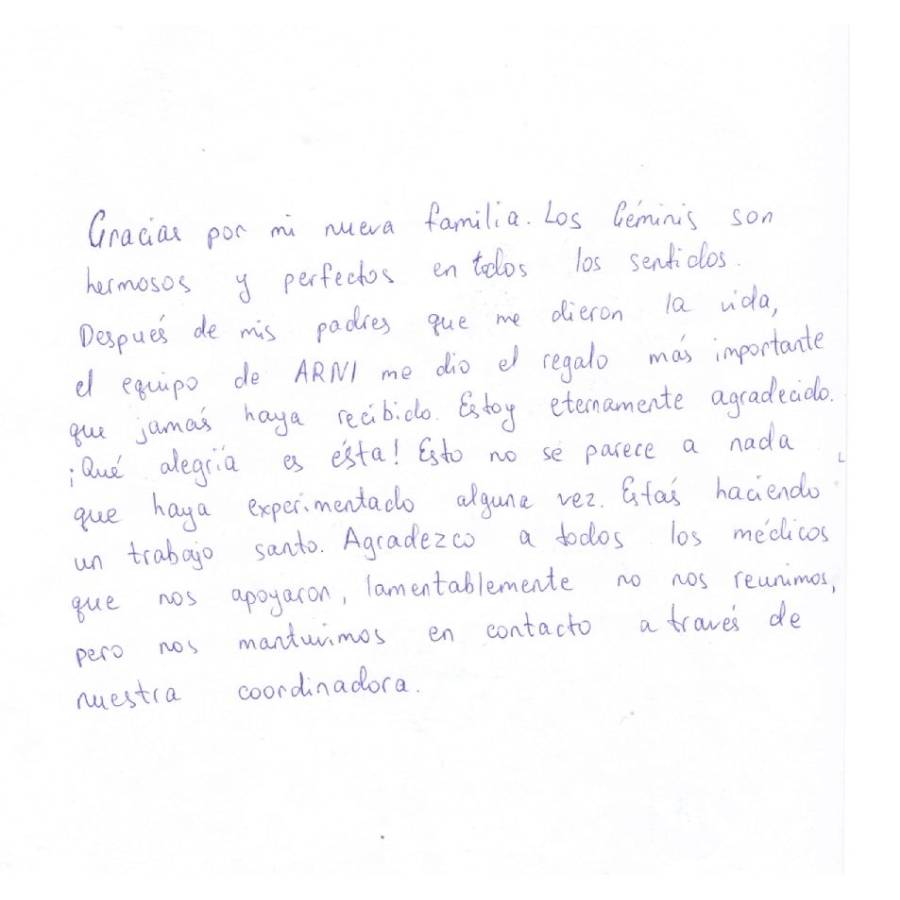 Gracias por mi nueva familia. Los Géminis son
hermosos y perfectos en todos los sentidos.
Después de mis padres que me dieron la vida,
el equipo de ARNI me dio el regalo más importante
que jamás haya recibido. Estoy eternamente agradecido.
¡Qué alegría es ésta! Esto no se parece a nada
que haya experimentado alguna vez. Estás haciendo
un trabajo santo. Agradezco a todos los médicos
que nos apoyaron, lamentablemente no nos reunimos,
pero nos mantuvimos en contacto a través de
nuestra coordinadora.